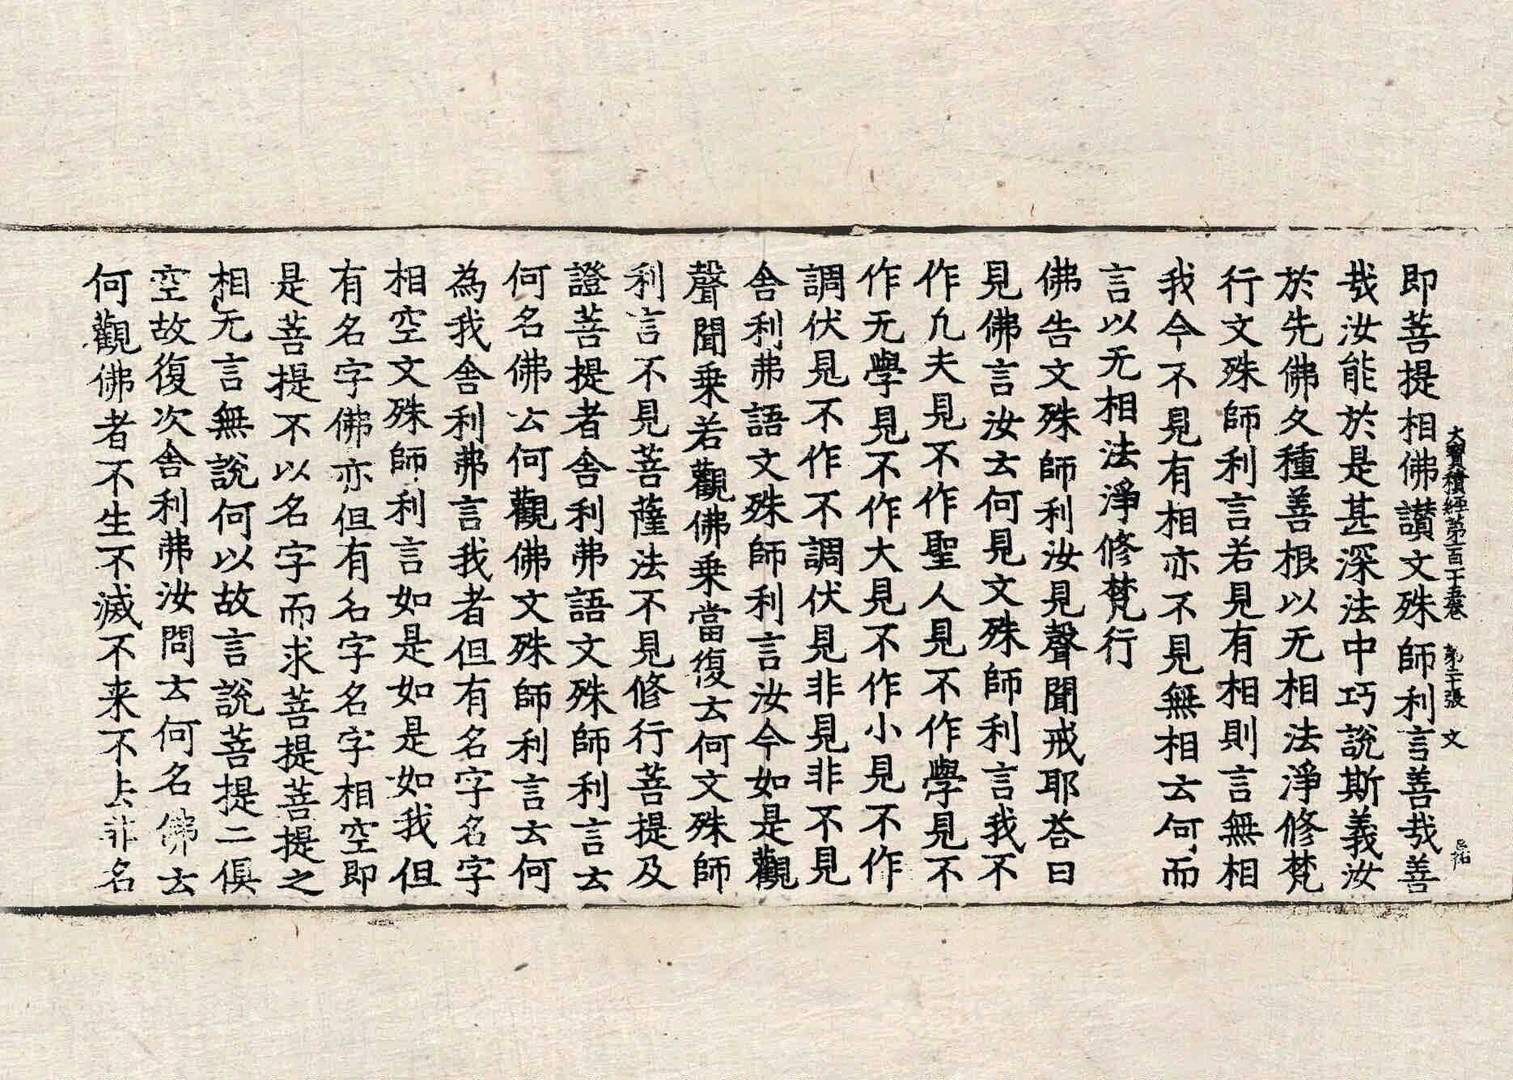 大寶積經第百十五卷 張 文
即菩提相佛讃文殊師利言善哉善
哉汝能於是甚深法中巧說斯義汝
於先佛久種善根以无相法淨修梵
行文殊師利言若見有相則言無相
我今不見有相亦不見無相云何而
言以无相法淨修梵行
佛告文殊師利汝見聲聞戒耶荅曰
見佛言汝云何見文殊師利言我不
作凡夫見不作聖人見不作學見不
作无學見不作大見不作小見不作
調伏見不作不調伏見非見非不見
舍利弗語文殊師利言汝今如是觀
聲聞乗若觀佛乗當復云何文殊師
利言不見菩薩法不見修行菩提及
證菩提者舍利弗語文殊師利言云
何名佛云何觀佛文殊師利言云何
為我舍利弗言我者但有名字名字
相空文殊師利言如是如是如我但
有名字佛亦但有名字名字相空即
是菩提不以名字而求菩提菩提之
相无言無說何以故言說菩提二俱
空故復次舍利弗汝問云何名佛云
何觀佛者不生不滅不来不去非名